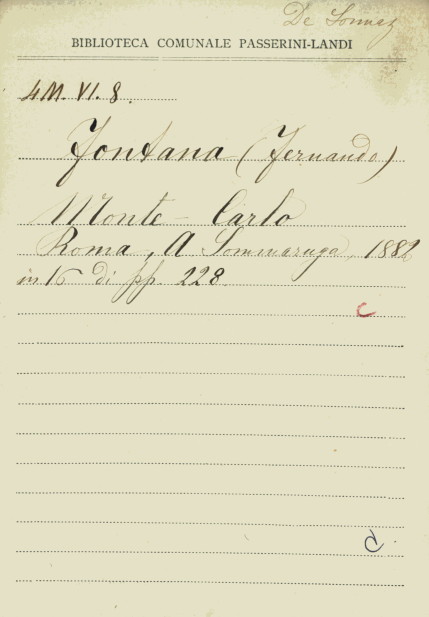 De
BIBLIOTECA COMUNALE PASSERINI-LANDI
4M. VI. 8.
Fontana (Fernando)
Monte-Carlo
Roma, A Sommaruga, 1882
in 16 di pp. 228.
C
C